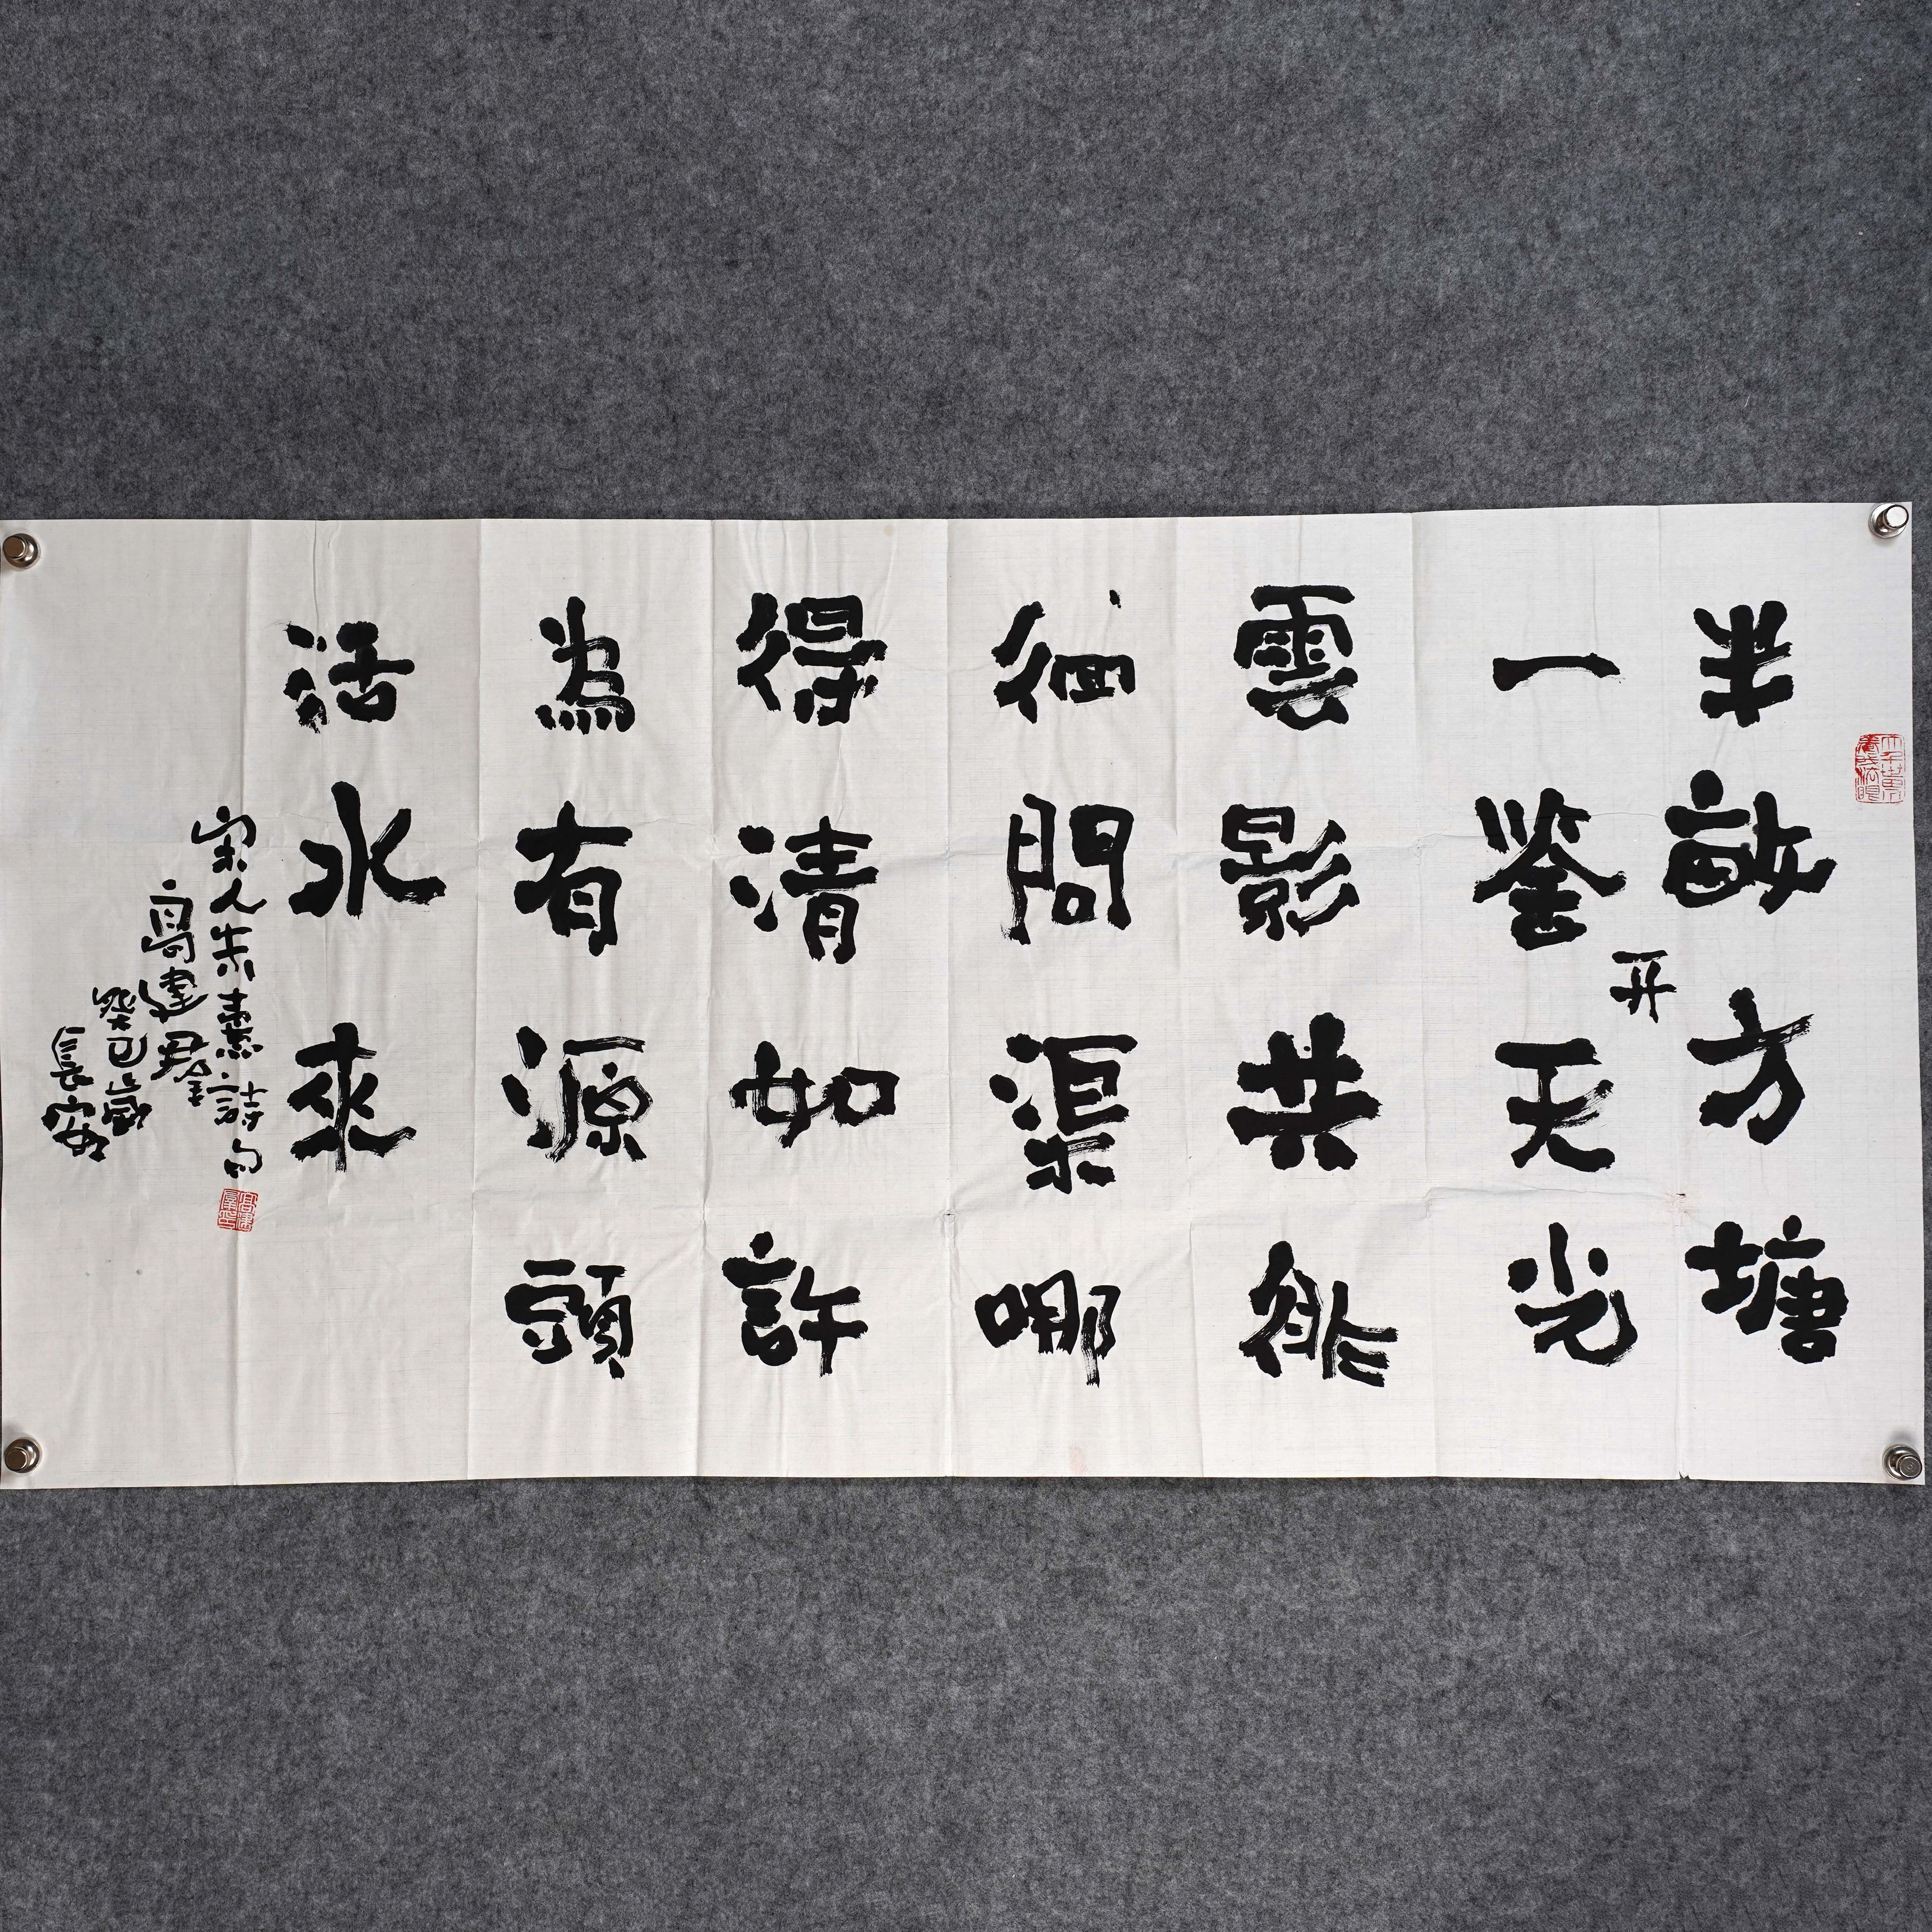 半畝方塘
一鉴天光
开
雲影共徘
徊問渠哪
得清如許
為有源頭
活水來
宋人朱熹詩句
高建群
癸巳歲
長安